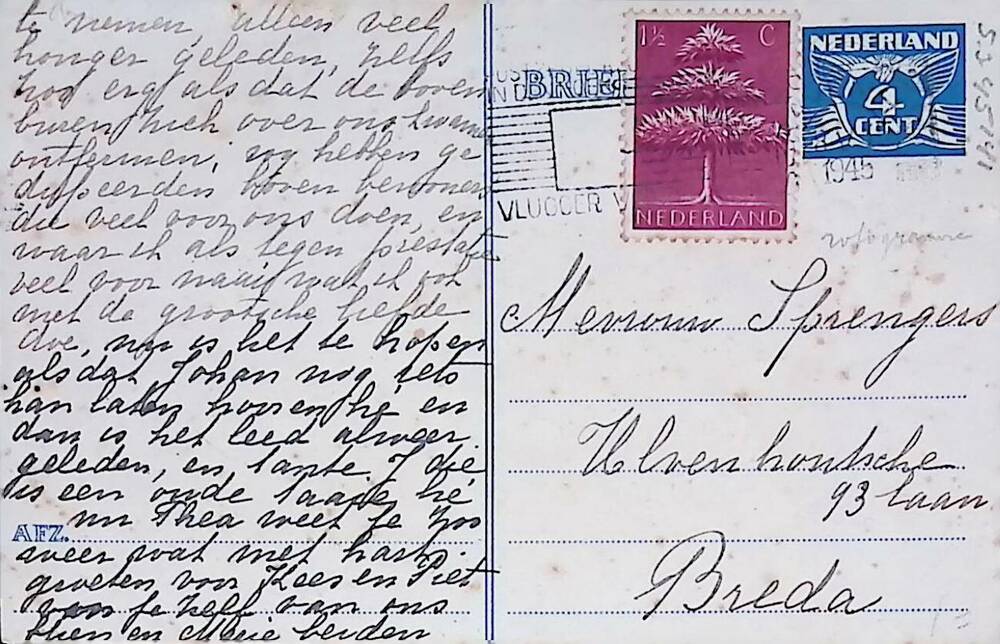 te nemen, alleen veel
honger geleden, zelfs
zoo erg als dat de boven
buren zich over ons kwamen
ontfermen, wy hebben ge
boven bewoners
die veel voor ons doen, en
waar ik als tegen prestatie
veel voor wat ik ook
met de grootsche liefde
doe, nu is het te hopen
als dat Johan nog iets
kan laten hooren hé en
dan is het leed alweer
geleden, en tante J die
is een oude taaie hé
nu Thea weet je zoo
AFZ.
weer wat met harts.
groeten voor Kees en Piet
van je zelf van ons
en beiden
BRIEF
VLUGGER
1½ C
NEDERLAND
NEDERLAND
4
CENT
1945
Mevrouw Sprengers
Ulvenhoutsche
93 laan
Breda